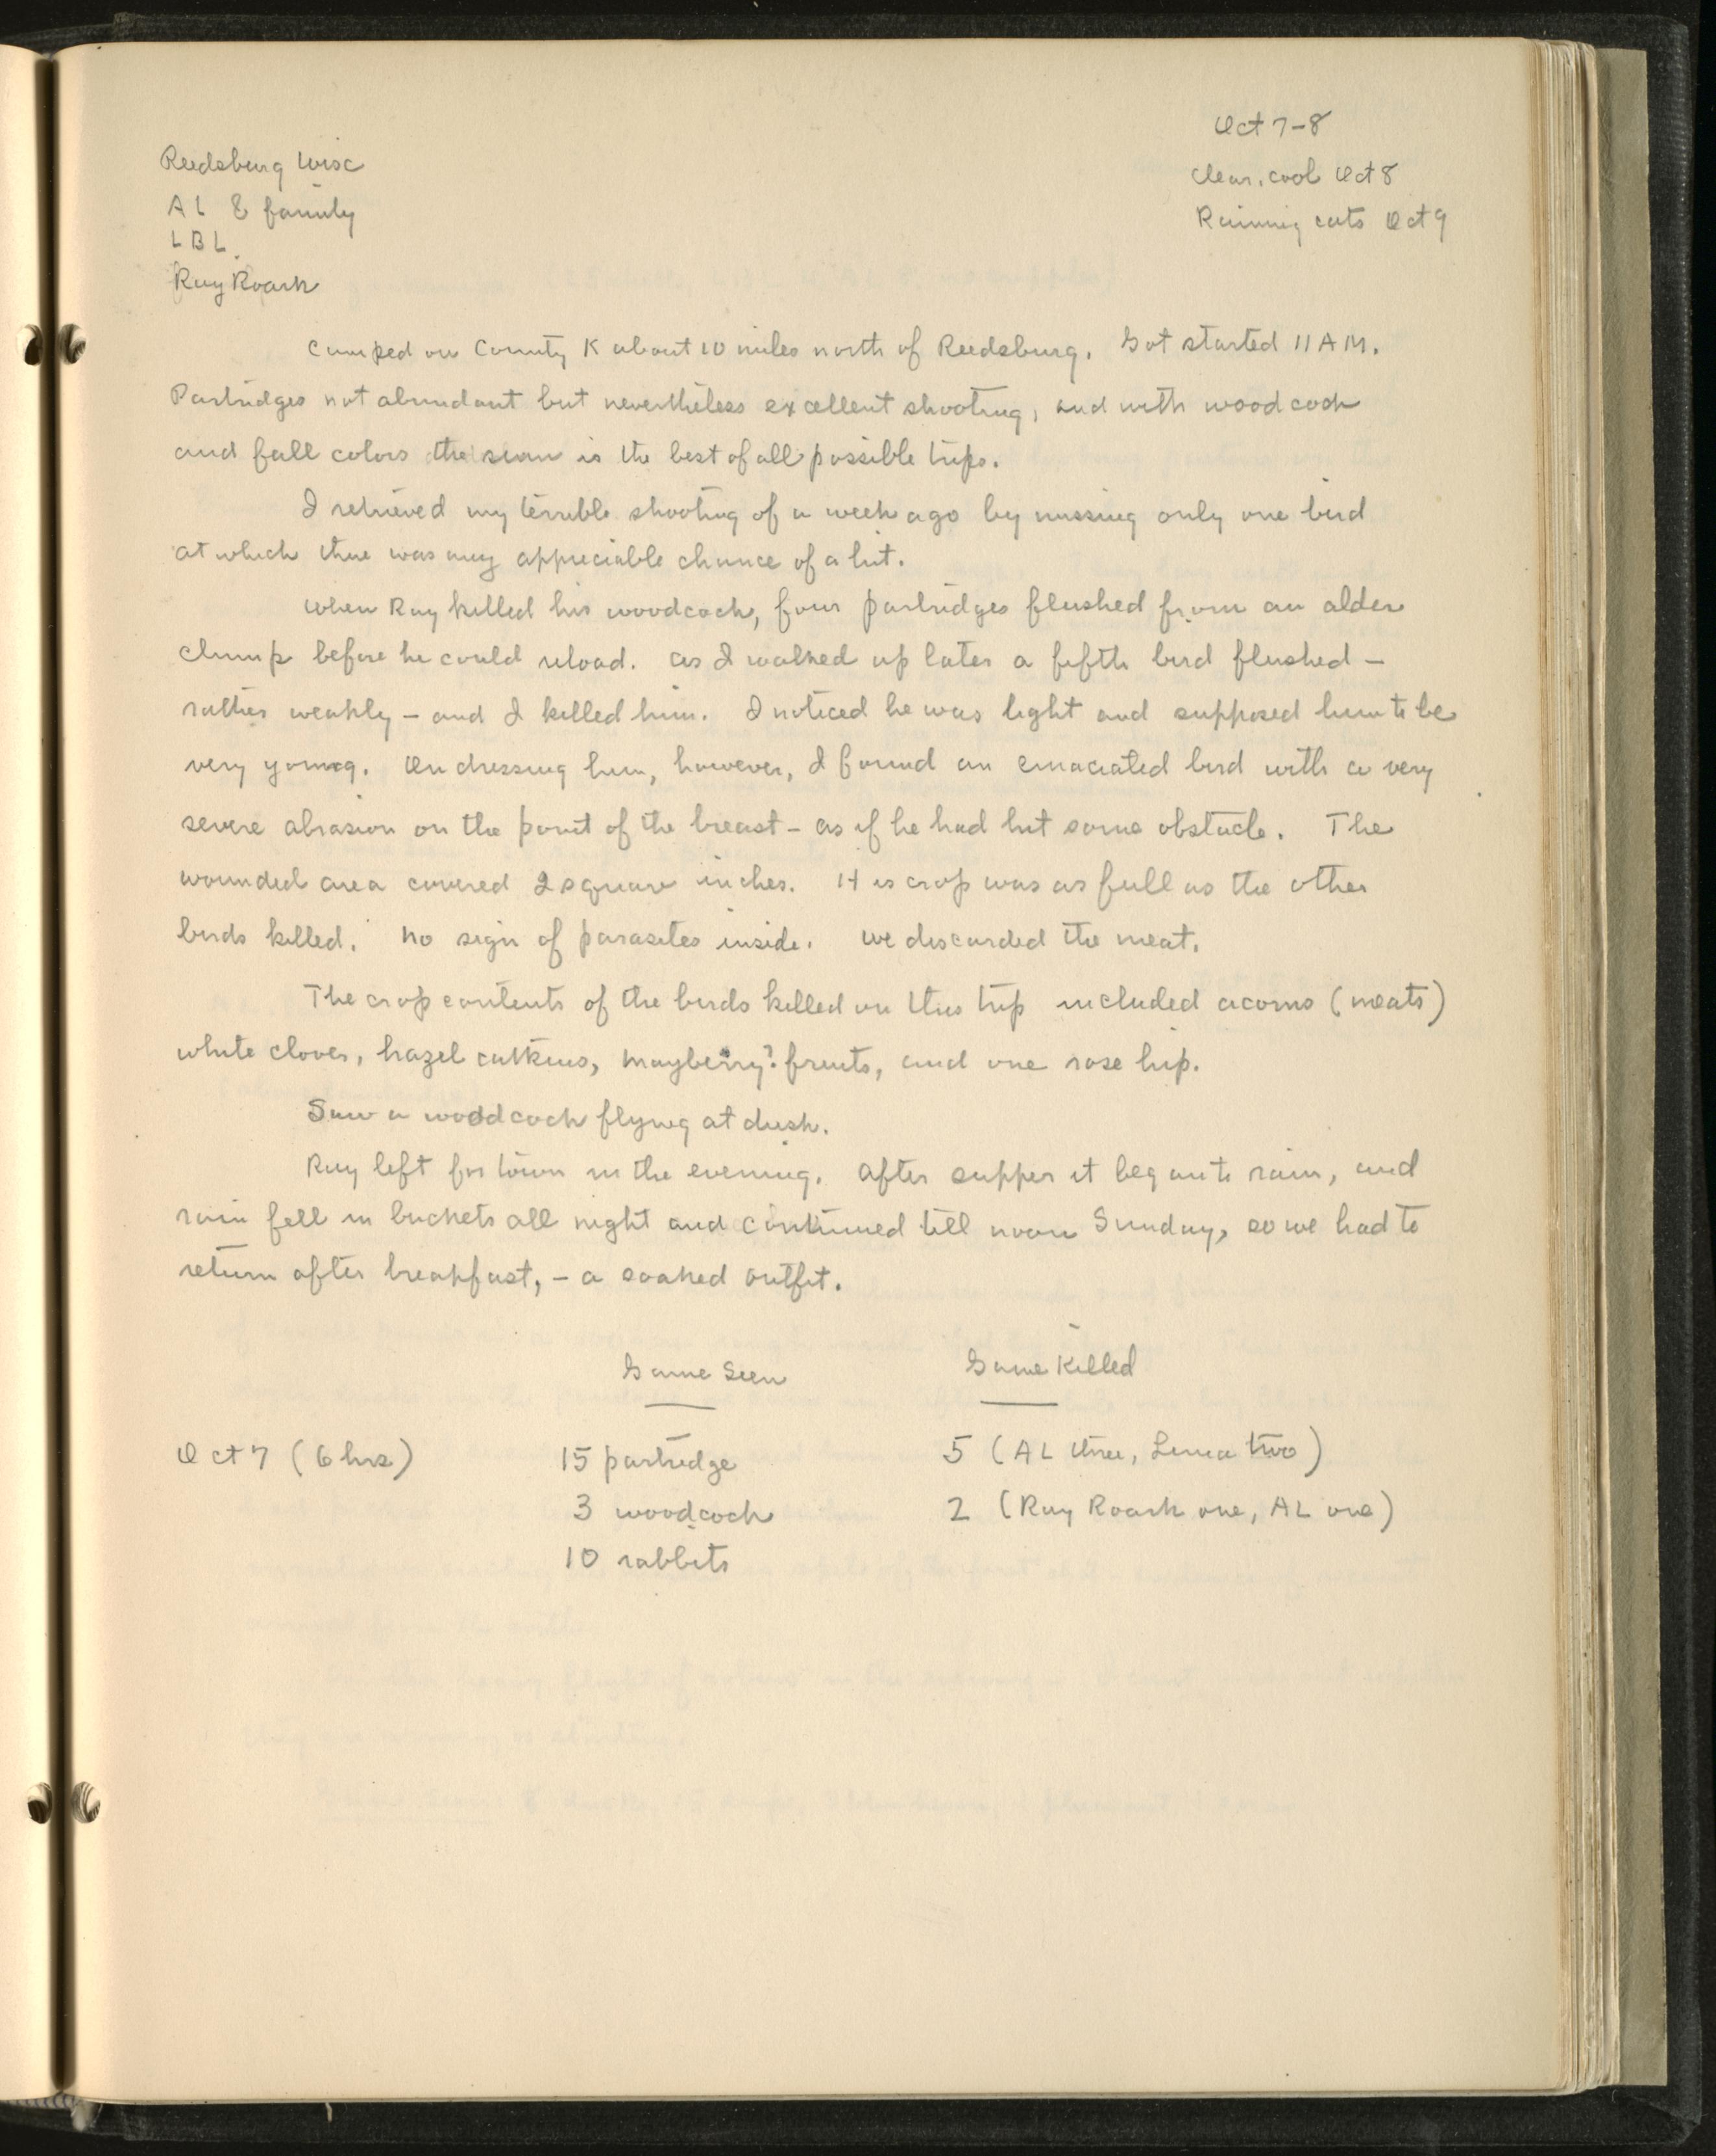 Oct 7-8
Reedsburg Wisc
Clear, cool Oct 8
AL & family
Raining cats Oct 9
LBL.
Ray Roark
Camped on County K about 10 miles north of Reedsburg. Got started 11 AM.
Partridges not abundant but nevertheless excellent shooting, and with woodcock
and fall colors the is the best of all possible trips.
I retrieved my terrible shooting of a week ago by missing only one bird
at which there was any appreciable chance of a hit.
When Ray killed his woodcock, four partridges flushed from an alder
clump before he could reload. As I walked up later a fifth bird flushed -
rather weakly - and I killed him. I noticed he was light and supposed him to be
very young. On dressing him, however, I found an emaciated bird with a very
severe abrasion on the point of the breast - as if he had hit some obstacle. The
wounded area covered 2 square inches. His crop was as full as the other
birds killed. No sign of parasites inside. We discarded the meat.
The crop contents of the birds killed on this trip included acorns (meats)
white clover, hazel catkins, mayberry? fruits, and one rose hip.
Saw a woodcock flying at dusk.
Ray left for town in the evening. After supper it began to rain, and
rain fell in buckets all night and continued till noon Sunday, so we had to
return after breakfast, - a soaked outfit.
Game Seen Game Killed
Oct 7 (6 hrs) 15 partridge 5 (AL three, Luna two)
3 woodcock 2 (Ray Roark one, AL one)
10 rabbits